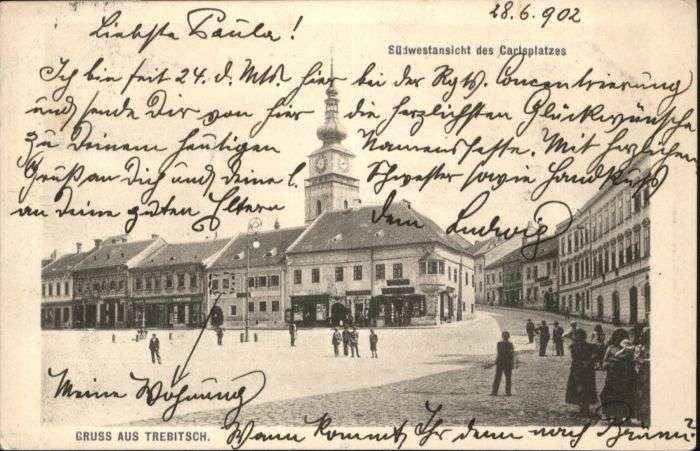 28.6.902
Liebste Paula!
Südwestansicht des Carlsplatzes
Ich bin seit 24. d. Mts. hier bei der Rgts. Concentrierung
und sende Dir von hier die herzlichsten Glückwünsche
zu Deinem heutigen Namensfeste. Mit herzlichen
Gruß an Dich und deine l. Schwester sowie Handkuss
an deine guten Eltern
Dein Ludwig
Meine Wohnung
GRUSS AUS TREBITSCH.
Wann kommt Ihr denn nach Brünn?